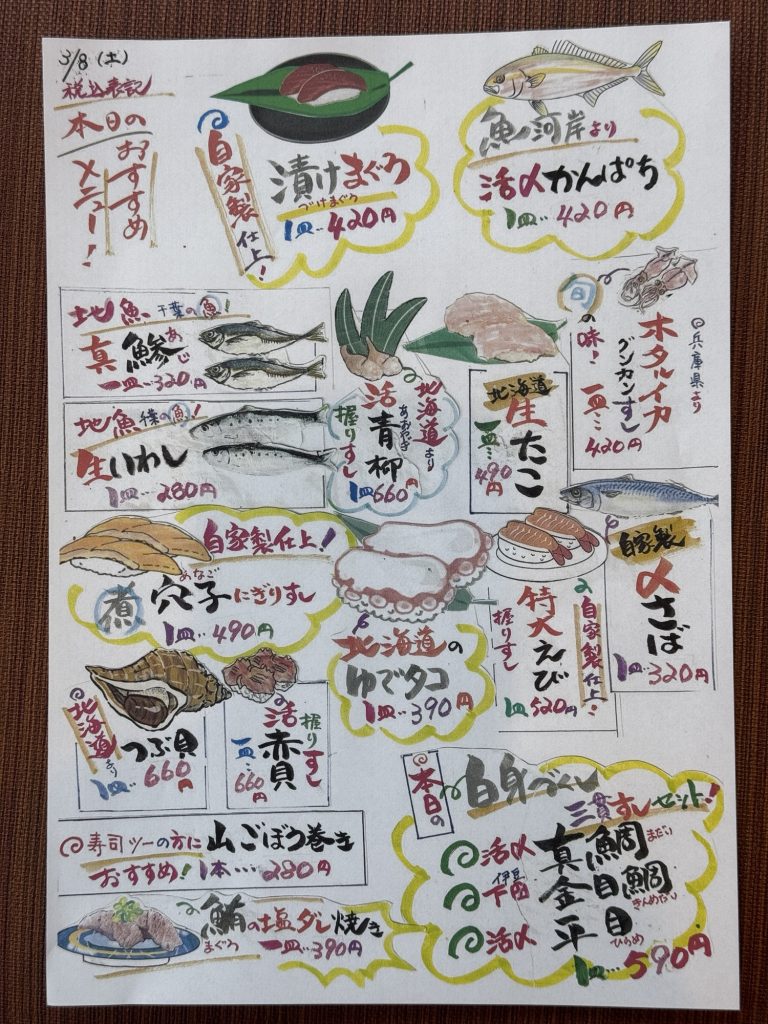 3/8(土)
税込表記
本日の
おすすめ
メニュー!
自家製仕上!
漬けまぐろ
づけまぐろ
1皿‥420円
魚河岸より
活〆かんぱち
1皿‥420円
地魚 千葉の魚!
真鯵
あじ
一皿‥320円
地魚 千葉の魚!
生いわし
1皿‥280円
北海道より
活青柳
あおやぎ
握りすし
1皿660円
北海道
生たこ
一皿‥490円
旬の味!
兵庫県より
ホタルイカ
グンカンすし
一皿‥420円
自家製仕上!
煮穴子にぎりすし
あなご
1皿‥490円
北海道の
ゆでタコ
1皿‥390円
自家製仕上!
特大えび
握りすし
1皿520円
自家製
〆さば
1皿‥320円
北海道より
つぶ貝
1皿‥660円
握りすし
活赤貝
一皿‥660円
寿司ツーの方に
おすすめ!
山ごぼう巻き
1本‥‥280円
鮪の塩ダレ焼き
まぐろ
一皿‥390円
本日の
白身づくし
三貫すしセット!
活〆 真鯛 まだい
伊豆下田 金目鯛 きんめだい
活〆 平目 ひらめ
1皿‥590円